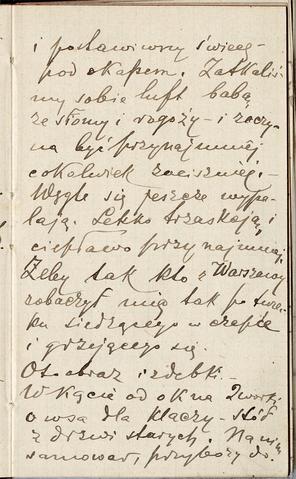 i postawiwszy świecę -
pod okapem. Zatkaliś-
my sobie luft babą,
ze słomy i rogoży - i zaczy-
na być przynajmniej
cokolwiek zaciszniej. -
Węgle się jeszcze wypa-
lają. Lekko trzaskają, i
ciepławo przynajmniej.
Żeby tak kto z Warszawy
zobaczył mię tak po turec-
ku siedzącego w czapce
i grzejącego się.
Oto obraz izdebki. -
W kącie od okna 2 worki
owsa dla klaczy - stół
z drzwi starych. Na nim
samowar, przybory do